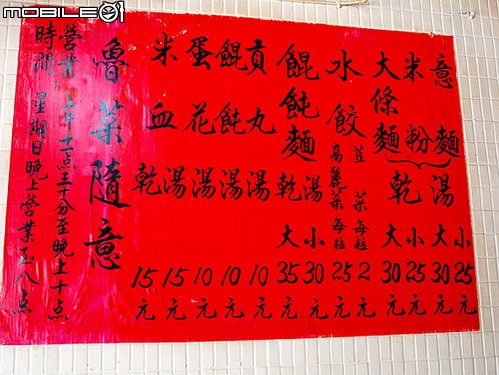 mobile01
意麵
米粉
大條麵
湯 乾
小 25元
大 30元
小 25元
大 30元
水餃
韮菜每粒 2元
高麗菜每粒 2.5元
餛飩麵 湯 乾
小 30元
大 35元
貢丸湯 10元
餛飩湯 10元
蛋花湯 10元
15元
米血乾 15元
魯菜隨意
營業時間
上午十一点三十分至晚上十点
星期日晚上營業至八点